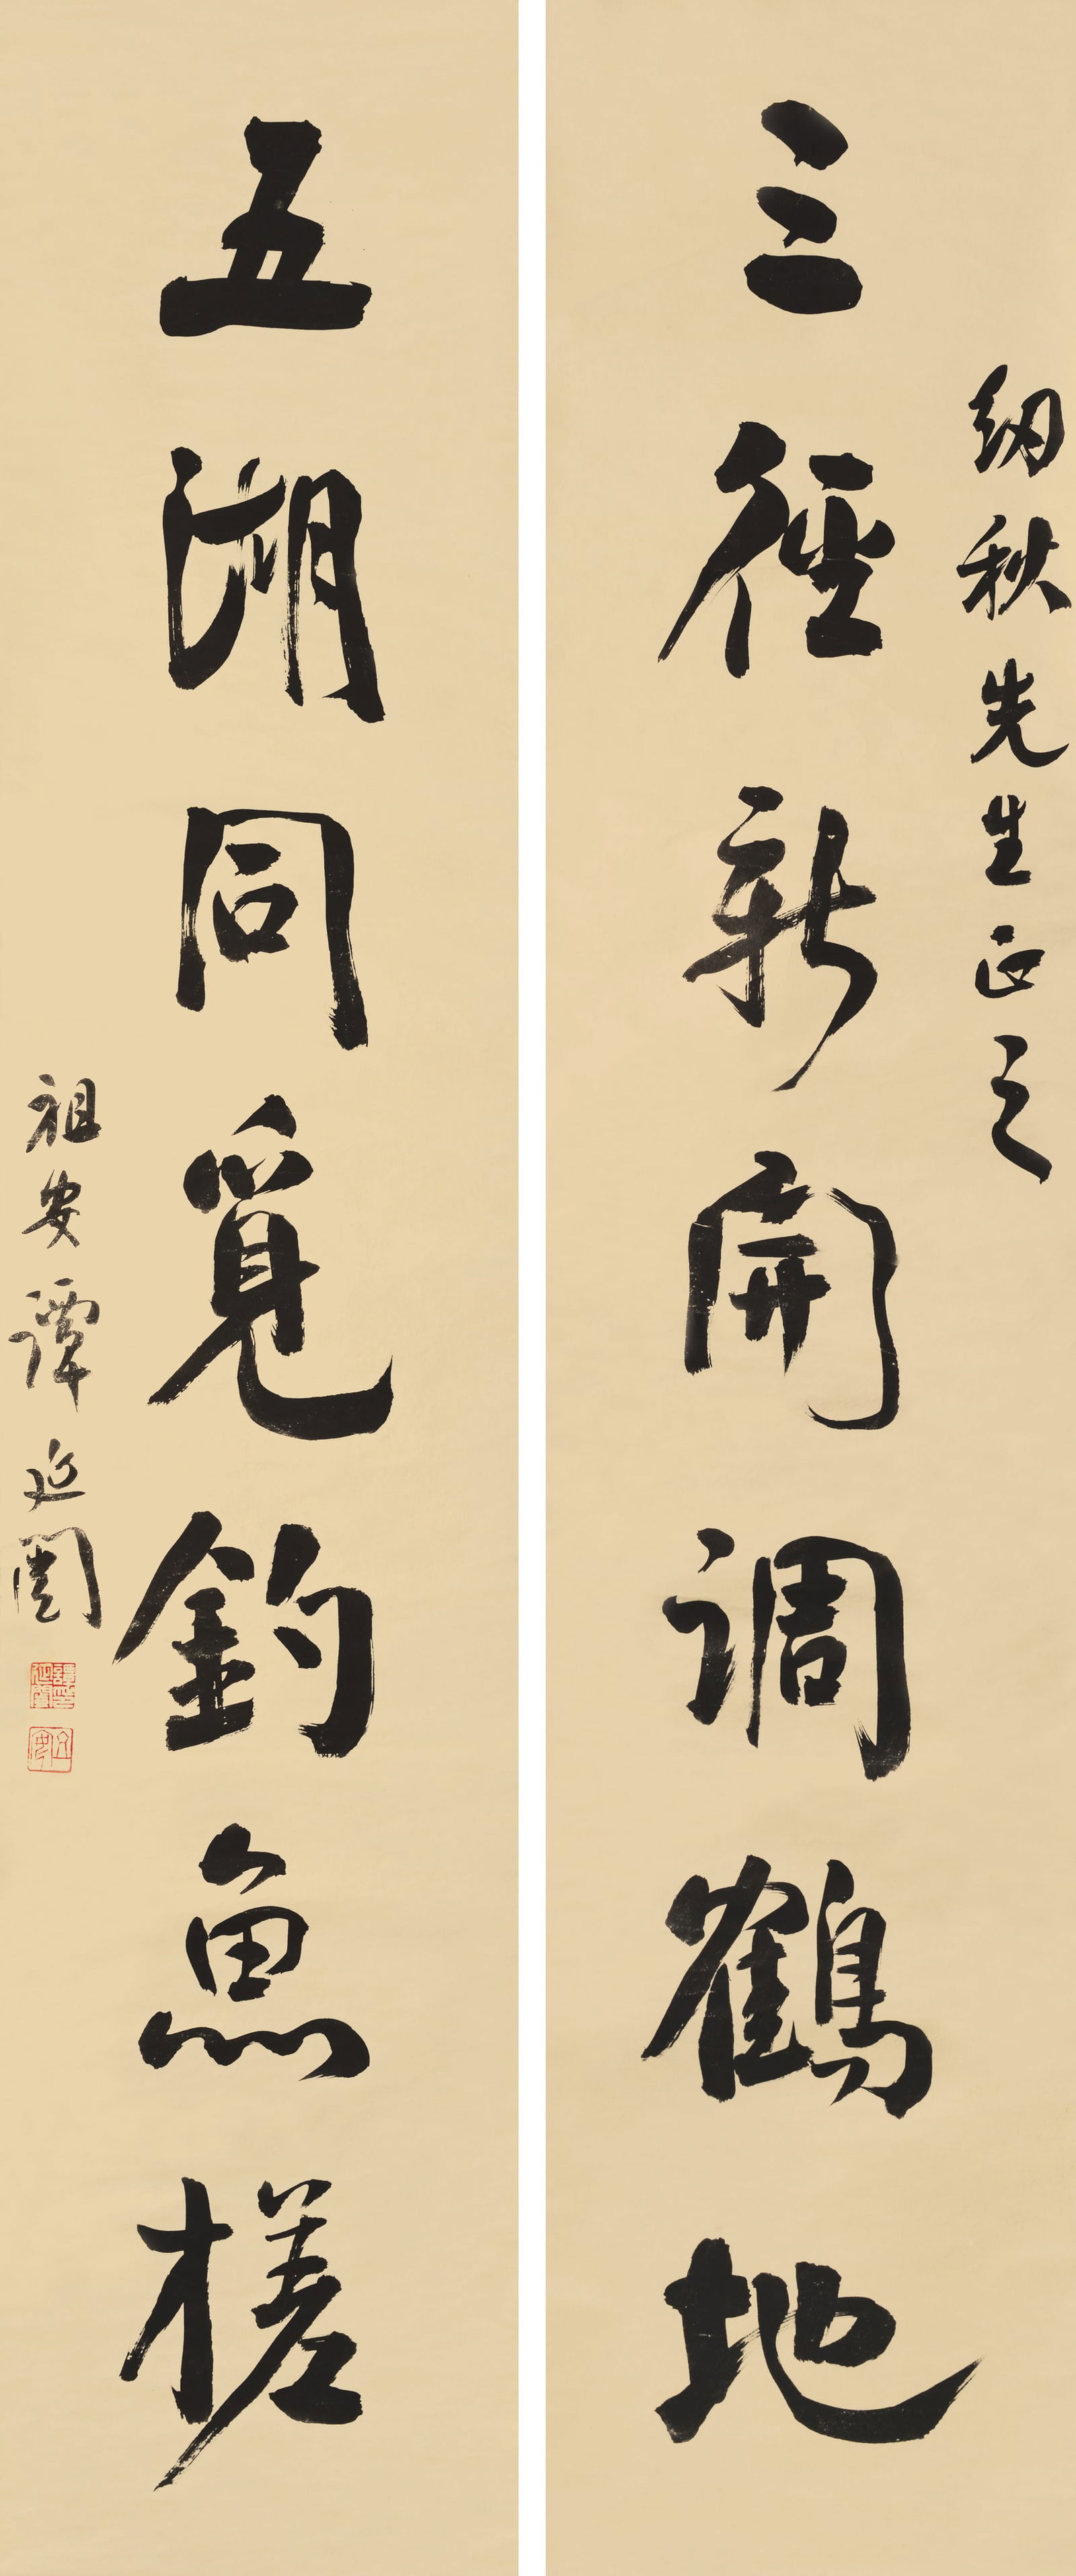 紉秋先生正之
三徑新開調鶴地
五湖同覓釣魚槎
祖安譚延闓
譚延闓印
祖安